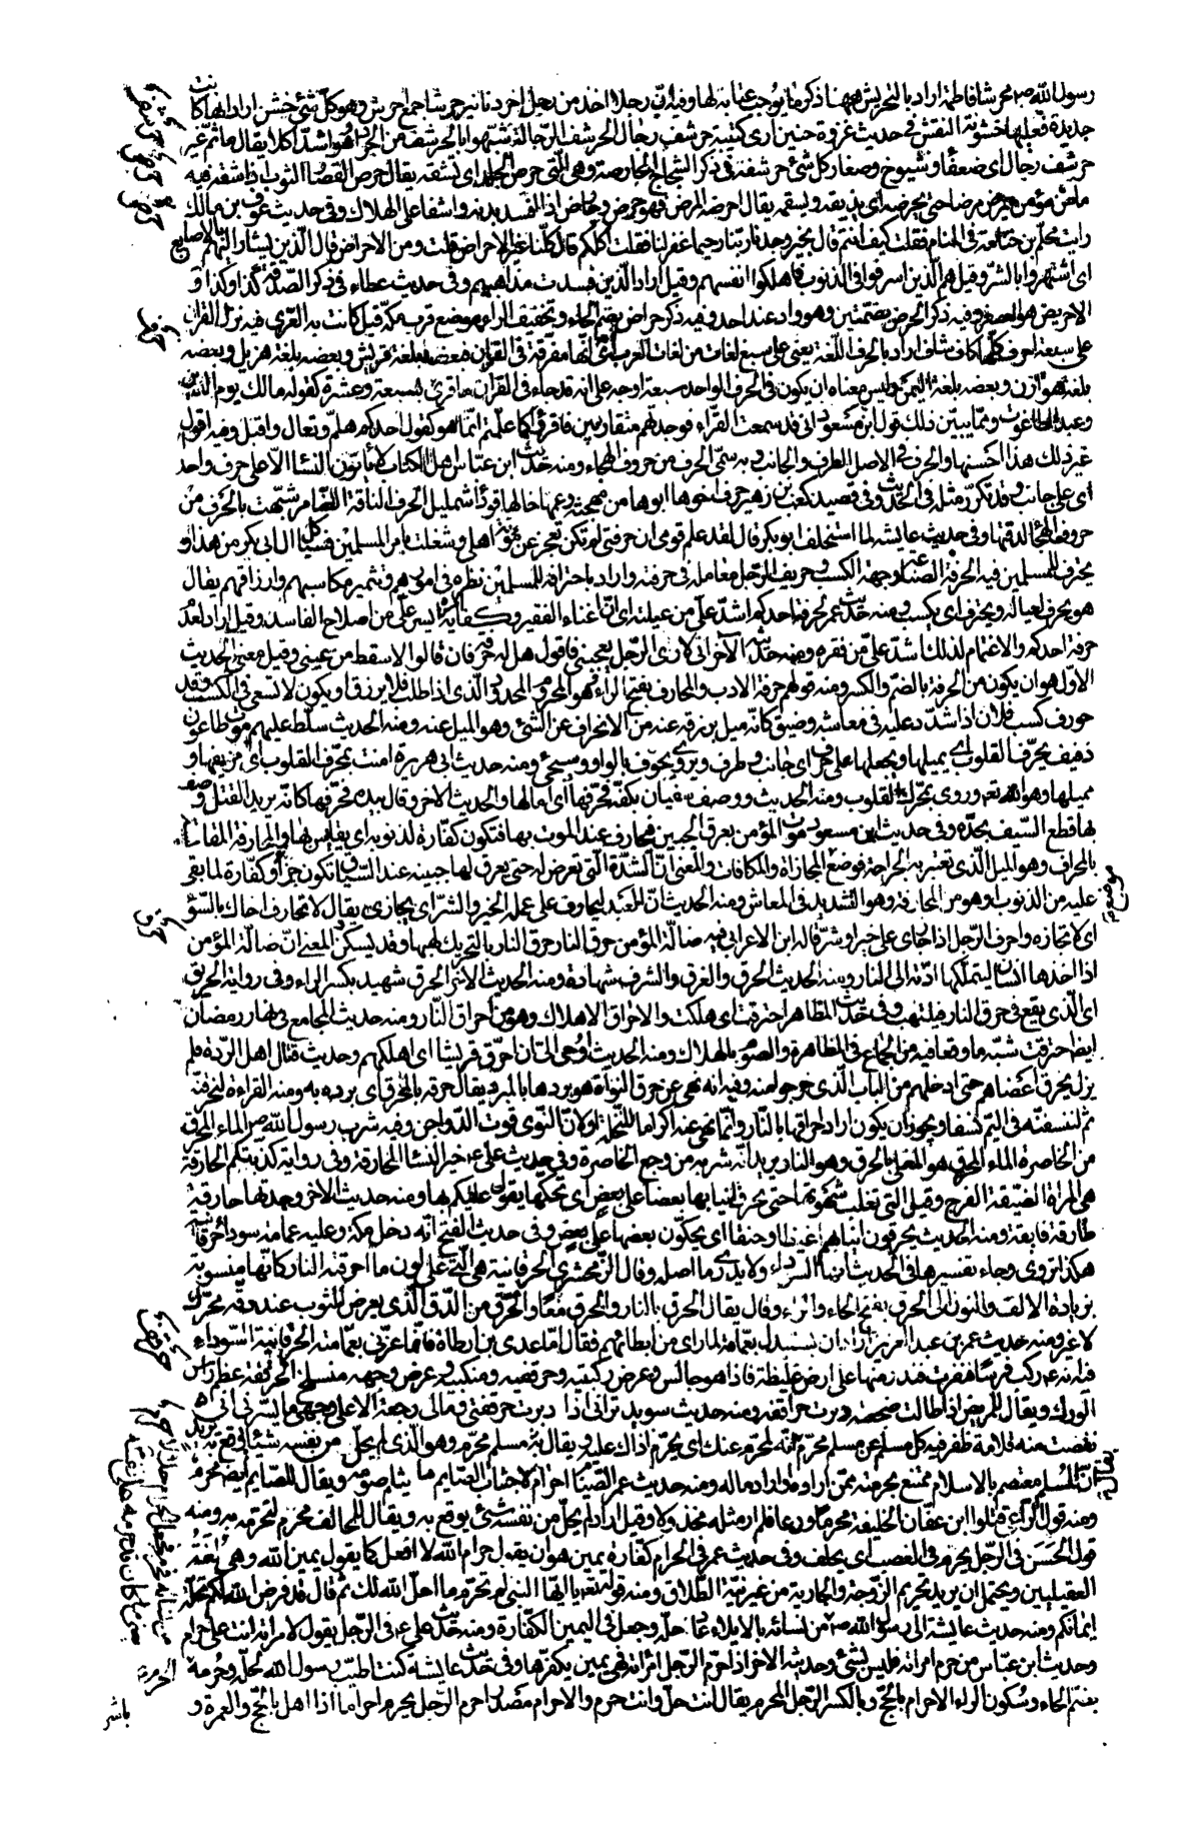 رسول الله ص محرشا فاطمة اراد بالتحريش ههنا ذكر ما يوجب عتابه لها وفيه ان رجلا اخذ من رجل اخر دنانير حرشا جمع احرش وهو كل شئ خشن اراد انها كانت
جديدة فعليها خشونة النقش في حديث غزوة حنين ارى كتيبة حرشف رجال الحرشف الرجالة شبهوا بالحرشف من الجراد وهو اشد اكلا يقال ما ثم غير
حرشف رجال اى ضعفاء وشيوخ وصغار كل شئ حرشفه في ذكر الشجاج الحارصة وهى التى تحرص الجلد اى تشقه يقال حرص القصار الثوب اذا شقه فيه
ما من مؤمن يمرض مرضا حتى يحرضه اى يدنفه ويسقمه يقال احرضه المرض فهو حرض وحارض اذا افسد بدنه واشفا على الهلاك وفى حديث عوف بن مالك
رايت محلم بن جثامة في المنام فقلت كيف انتم قال بخير وجدنا ربنا رحيما غفر لنا فقلت لكلكم قال لكلنا غير الاحراض قلت ومن الاحراض قال الذين يشار اليهم بالاصابع
اى اشتهروا بالشر وقيل هم الذين اسرفوا فى الذنوب فاهلكوا انفسهم وقيل اراد الذين فسدت مذاهبهم وفى حديث عطاء فى ذكر الصدقة كذا وكذا و
الاحريض هو العصفر وفيه ذكر الحرض بضمتين وهو واد عند احد وفيه ذكر حراض بضم الحاء وتخفيف الراء موضع قرب مكة قيل كانت به العزى فيه نزل القران
على سبعة احرف كلها كاف شاف اراد بالحرف اللغة يعنى على سبع لغات من لغات العرب اى انها مفرقة فى القران فبعضه بلغة قريش وبعضه بلغة هذيل وبعضه
بلغة هوازن وبعضه بلغة اليمن وليس معناه ان يكون فى الحرف الواحد سبعة اوجه على انه قد جاء فى القران ما قرئ بسبعة وعشرة كقوله مالك يوم الدين
وعبد الطاغوت ومما يبين ذلك قول ابن مسعود انى قد سمعت القراء فوجدتهم متقاربين فاقرؤا كما علمتم انما هو كقول احدكم هلم وتعال واقبل وفيه اقوال
غير ذلك هذا احسنها والحرف فى الاصل الطرف والجانب وبه سمى الحرف من حروف الهجاء ومنه حديث ابن عباس اهل الكتاب لا ياتون النسا الا على حرف واحد
اى على جانب وقد تكرر مثله فى الحديث وفى قصيد كعب بن زهير حرف اخوها ابوها من مهجنة وعمها خالها قوداء شمليل الحرف الناقة الضامر شبهت بالحرف من
حروف الهجا لدقتها وفى حديث عايشة لما استخلف ابو بكر قال لقد علم قومى ان حرفتى لم تكن تعجز عن مؤنة اهلى وشغلت بامر المسلمين فسياكل ال ابى بكر من هذا و
يحترف للمسلمين فيه الحرفة الصناعة وجهة الكسب وحريف الرجل معامله فى حرفته واراد باحترافه للمسلمين نظره فى امورهم وتثمير مكاسبهم وارزاقهم يقال
هو يحرف لعياله ويحترف اى يكسب ومنه حديث عمر لحرفة احدكم اشد على من عيلته اى ان اغناء الفقير وكفايته ايسر على من اصلاح الفاسد وقيل اراد لعدم
حرفة احدهم والاغتمام لذلك اشد على من فقره ومنه حديثه الاخر انى لارى الرجل يعجبنى فاقول هل له حرفة فان قالوا لا سقط من عينى وقيل معنى الحديث
الاول هو ان يكون من الحرفة بالضم والكسر ومنه قولهم حرفة الادب والمحارف بفتح الراء هو المحروم المحدود الذى اذا طلب فلا يرزق او يكون لا تسعى فى الكسب وقد
حورف كسب فلان اذا شدد عليه فى معاشه وضيق كانه ميل برزقه عنه من الانحراف عن الشئ وهو الميل عنه ومنه الحديث سلط عليهم موت طاعون
ذفيف يحرف القلوب اى يميلها ويجعلها على حرف اى جانب وطرف ويروى يحوف بالواو وسيجئ ومنه حديث ابى هريرة امنت بمحرف القلوب اى مزيغها و
مميلها وهو الله تع وروى بمحرك القلوب ومنه الحديث ووصف سفيان بكفه فحرفها اى امالها والحديث الاخر وقال بيده فحرفها كانه يريد القتل ووصف
بها قطع السيف بحده وفى حديث ابن مسعود موت المؤمن بعرق الجبين فيحارف عند الموت بها فتكون كفارة لذنوبه اى يقايس بها والمحارفة المقايسة
بالمحراف وهو الميل الذى تعتبر به الجراحة فوضع موضع المجازاة والمكافات والمعنى ان الشدة التى تعرض له حتى يعرق لها جبينه عند السياق تكون جزاء وكفارة لما بقى
عليه من الذنوب او هو من المحارفة وهو التشديد فى المعاش ومنه الحديث ان العبد ليحارف على عمله الخير والشر اى يجازى يقال لا تحارف اخاك بالسوء
اى لا تجازه واحرف الرجل اذا جازى على خير او شر قاله ابن الاعرابى فيه ضالة المؤمن حرق النار حرق النار بالتحريك لهبها وقد يسكن والمعنى ان ضالة المؤمن
اذا اخذها انسان ليتملكها ادته الى النار ومنه الحديث الحرق والغرق والشرف شهادة ومنه الحديث الاخر الحرق شهيد بكسر الراء وفى رواية الحريق
اى الذى يقع فى حرق النار فيلتهب وفى حديث المظاهر احترقت اى هلكت والاحراق الاهلاك وهو من احراق النار ومنه حديث المجامع فى نهار رمضان
ايضا احترقت شبه ما وقعا فيه من الجماع فى المظاهرة والصوم بالهلاك ومنه الحديث اوحى الى ان احرق قريشا اى اهلكهم وحديث قتال اهل الردة فلم
يزل يحرق اعضاهم حتى ادخلهم من الباب الذى خرجوا منه وفيه انه نهى عن حرق النواة هو بردها بالمبرد يقال حرقه بالمحرق اى برده به ومنه القراءة لنحرقنه
ثم لننسفنه فى اليم نسفا ويجوز ان يكون اراد احراقها بالنار وانما نهى عنه اكراما للنخلة او لان النوى قوت الدواجن وفيه شرب رسول الله ص الماء المحرق
من الخاصرة الماء المحرق هو المغلى بالحرق وهو النار يريد انه شربه من وجع الخاصرة وفى حديث على ع خير النسا الحارقة وفى رواية كذبتكم الحارقة
هى المراة الضيقة الفرج وقيل التى تغلبها شهوتها حتى تحرق انيابها بعضها على بعض اى تحكها يقول عليكم بها ومنه حديث الاخر وجدتها حارقة
طارقة فايقة ومنه الحديث يحرقون انيابهم غيظا وحنقا اى يحكون بعضها على بعض وفى حديث الفتح انه دخل مكة وعليه عمامة سوداء حرقانية
هكذا تروى وجاء تفسيرها فى الحديث انها السوداء ولا يدرى ما اصله وقال الزمخشرى الحرقانية هى التى على لون ما احرقته النار كانها منسوبة
بزيادة الالف والنون الى الحرق بفتح الحاء والراء وقال يقال الحرق بالنار والحرق معا والحرق من الدق الذى يعرض للثوب عند دقه محرك
لا غير ومنه حديث عمر بن عبد العزيز اراد ان يستبدل بعماله لما راى من ابطائهم فقال اما عدى بن ارطاة فانما غرنى بعمامته الحرقانية السوداء
فيه انه ع ركب فرسا فنفرت فندر منها على ارض غليظة فاذا هو جالس وعرض ركبتيه وحرقفتيه ومنكبيه وعرض وجهه منسلخ الحرقفة عظم راس
الورك ويقال للمريض اذا طالت ضجعته دبرت حراقفه ومنه حديث سويد ترانى اذا دبرت حرقفتى ومالى رجعة الا على وجهى ما يسرنى انى
نقصت منه قلامة ظفر فيه كل مسلم عن مسلم محرم يقال انه لمحرم عنك اى يحرم اذاك عليه ويقال مسلم محرم وهو الذى لم يحل من نفسه شيئا يوقع به يريد
ان المسلم معتصم بالاسلام ممتنع بحرمته ممن اراده واراد ماله ومنه حديث عمر الصيام احرام لاجتناب الصايم ما يثلم صومه ويقال للصايم ايضا محرم
ومنه قول الراعى قتلوا ابن عفان الخليفة محرما ودعا فلم ار مثله مخذولا وقيل اراد لم يحل من نفسه شئ يوقع به ويقال للحالف محرم لتحرمه به ومنه
قول الحسن فى الرجل يحرم فى الغضب اى يحلف وفى حديث عمر فى الحرام كفارة يمين هو ان يقول حرام الله لا افعل كما يقول يمين الله وهى لغة
العقيليين ويحتمل ان يريد تحريم الزوجة والجارية من غير نية الطلاق ومنه قوله تع يا ايها النبى لم تحرم ما احل الله لك ثم قال قد فرض الله لكم تحلة
ايمانكم ومنه حديث عايشة الى رسول الله ص من نسائه بالايلاء عاد حله وجعل فى اليمين الكفارة ومنه حديث على ع فى الرجل يقول لامراته انت على حرام
وحديث ابن عباس من حرم امراته فليس بشئ وحديثه الاخر اذا حرم الرجل امراته فهى يمين يكفرها وفى حديث عايشة كنت اطيب رسول الله لحله وحرمه
بضم الحاء وسكون الراء الاحرام بالحج وبالكسر الرجل المحرم يقال انت حل وانت حرم والاحرام مصدر احرم الرجل يحرم احراما اذا اهل بالحج والعمرة و
باشر